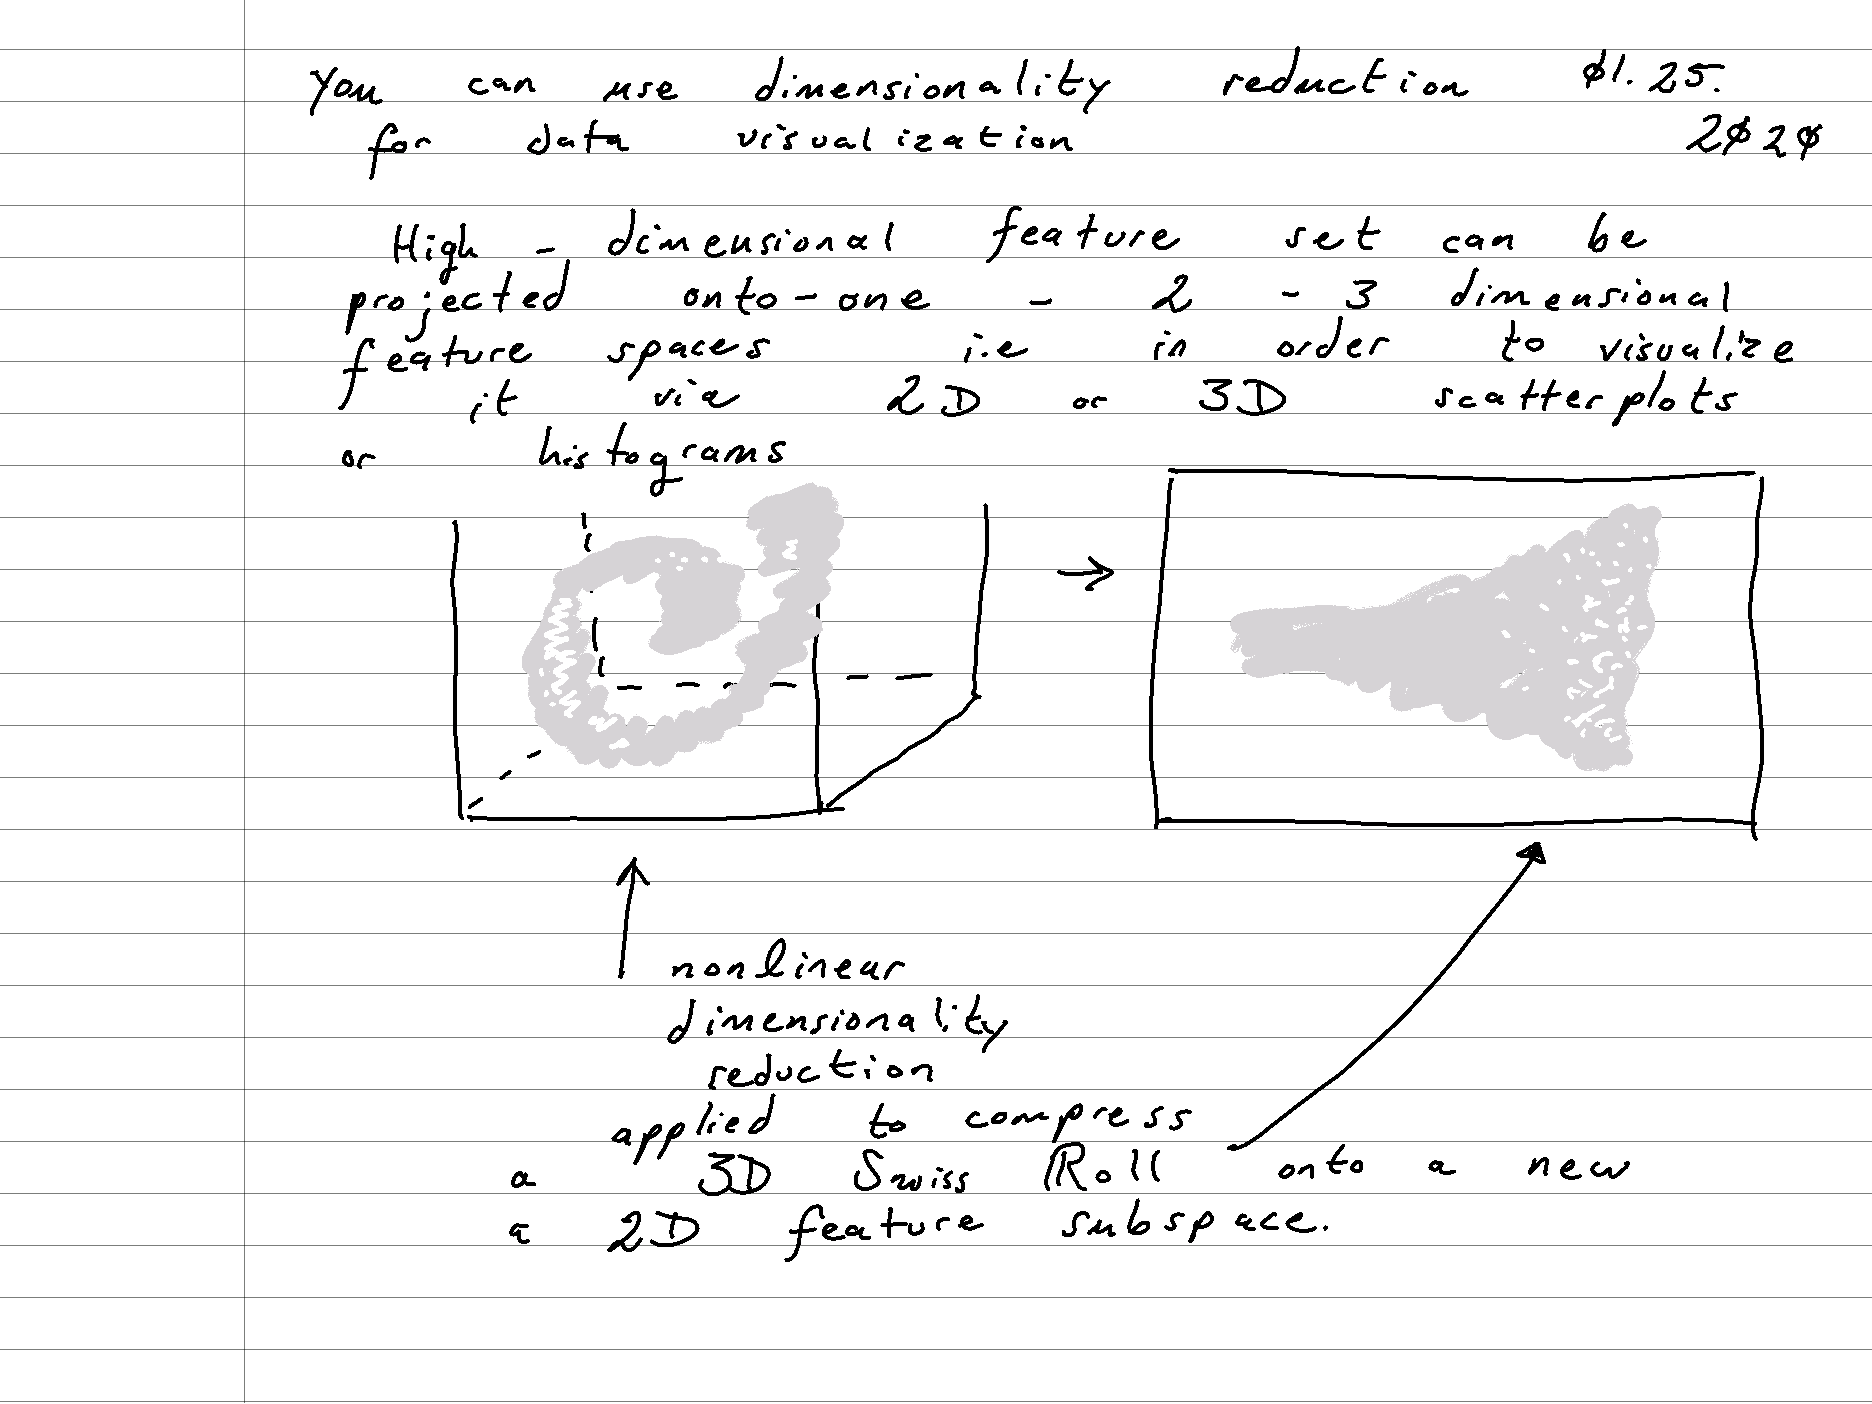 You can use dimensionality reduction 01.25.
for data visualization 2020
High - dimensional feature set can be
projected onto - one - 2 - 3 dimensional
feature spaces i.e in order to visualize
it via 2D or 3D scatterplots
or histograms
nonlinear
dimensionality
reduction
applied to compress
a 3D Swiss Roll onto a new
a 2D feature subspace.